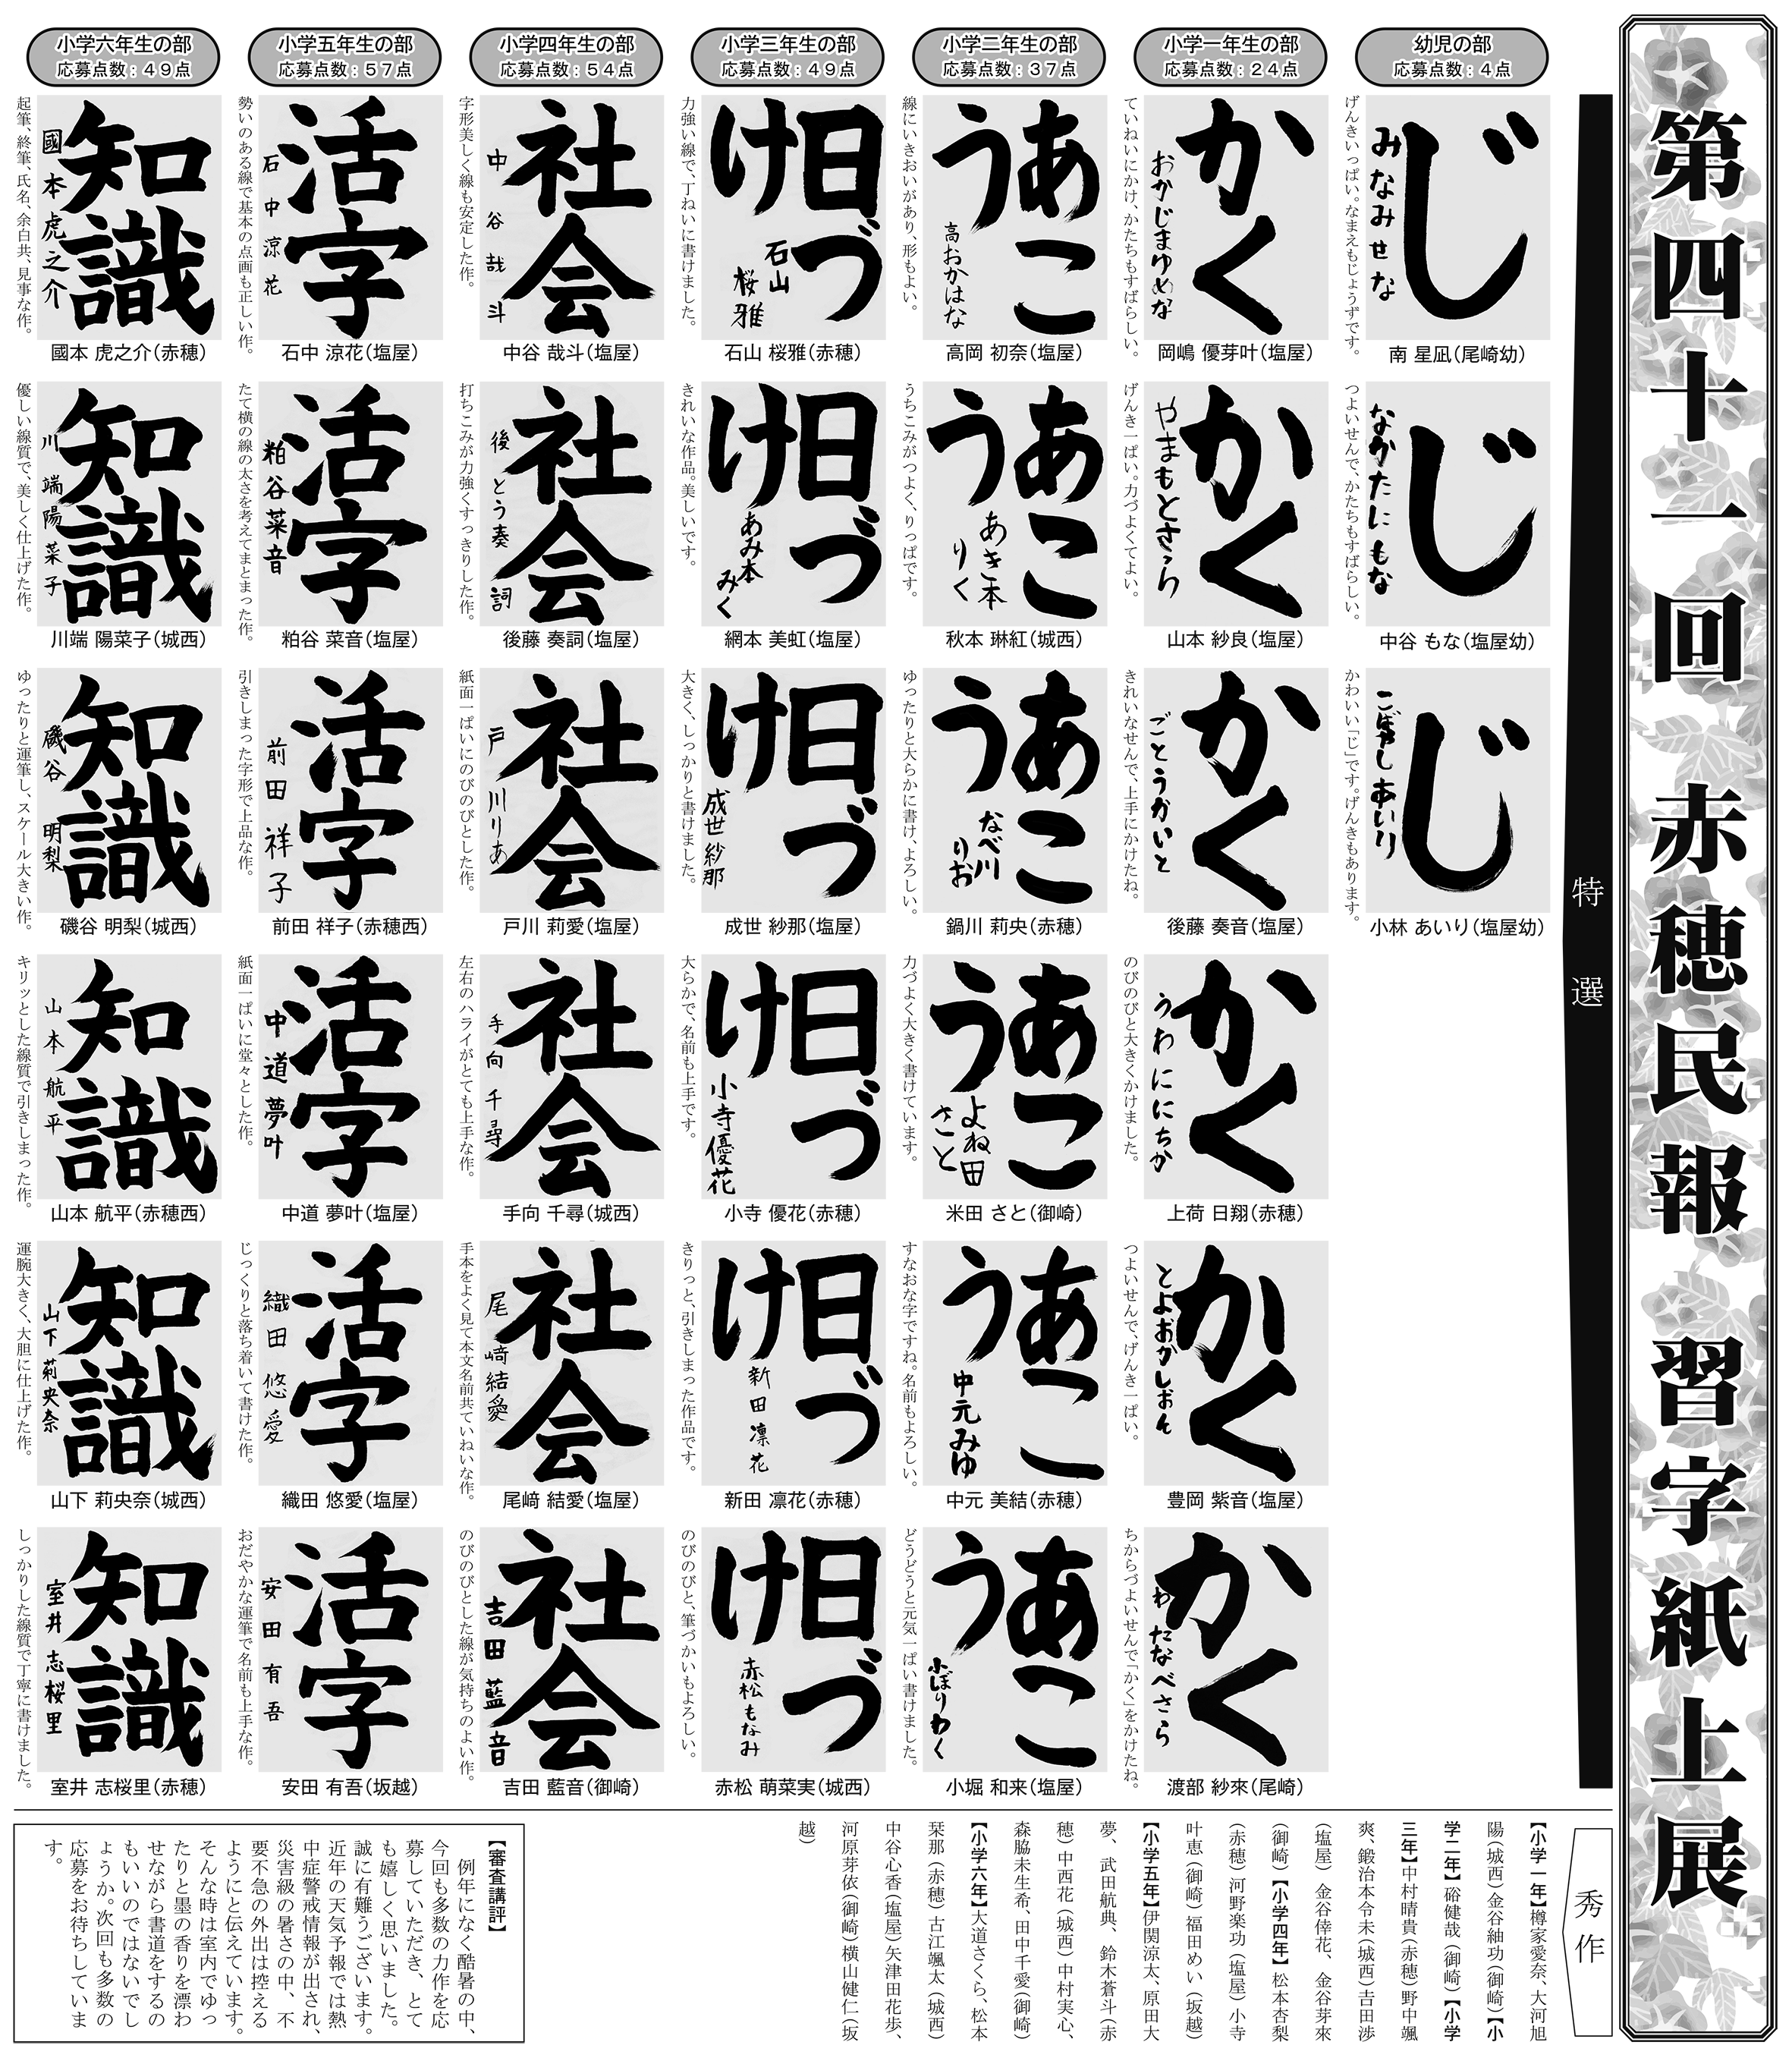 第四十一回 赤穂民報 習字紙上展
特選
幼児の部
応募点数：４点
じ
みなみせな
げんきいっぱい。なまえもじょうずです。
南 星凪（尾崎幼）
じ
なかたにもな
つよいせんで、かたちもすばらしい。
中谷 もな（塩屋幼）
じ
こばやしあいり
かわいい「じ」です。げんきもあります。
小林 あいり（塩屋幼）
小学一年生の部
応募点数：２４点
かく
おかじまゆめな
ていねいにかけ、かたちもすばらしい。
岡嶋 優芽叶（塩屋）
かく
やまもとさら
げんき一ぱい。力づよくてよい。
山本 紗良（塩屋）
かく
ごとうかいと
きれいなせんで、上手にかけたね。
後藤 奏音（塩屋）
かく
うわににちか
のびのびと大きくかけました。
上荷 日翔（赤穂）
かく
とよおかしおん
つよいせんで、げんき一ぱい。
豊岡 紫音（塩屋）
かく
わたなべさら
ちからづよいせんで「かく」をかけたね。
渡部 紗來（尾崎）
小学二年生の部
応募点数：３７点
あこう
高おかはな
線にいきおいがあり、形もよい。
高岡 初奈（塩屋）
あこう
あき本りく
うちこみがつよく、りっぱです。
秋本 琳紅（城西）
あこう
なべ川りお
ゆったりと大らかに書け、よろしい。
鍋川 莉央（赤穂）
あこう
よね田さと
力づよく大きく書けています。
米田 さと（御崎）
あこう
中元みゆ
すなおな字ですね。名前もよろしい。
中元 美結（赤穂）
あこう
小ぼりわく
どうどうと元気一ぱい書けました。
小堀 和来（塩屋）
小学三年生の部
応募点数：４９点
日づけ
石山桜雅
力強い線で、丁ねいに書けました。
石山 桜雅（赤穂）
日づけ
あみ本みく
きれいな作品。美しいです。
網本 美虹（塩屋）
日づけ
成世紗那
大きく、しっかりと書けました。
成世 紗那（塩屋）
日づけ
小寺優花
大らかで、名前も上手です。
小寺 優花（赤穂）
日づけ
新田凛花
きりっと、引きしまった作品です。
新田 凛花（赤穂）
日づけ
赤松もなみ
のびのびと、筆づかいもよろしい。
赤松 萌菜実（城西）
小学四年生の部
応募点数：５４点
社会
中谷哉斗
字形美しく線も安定した作。
中谷 哉斗（塩屋）
社会
後とう奏詞
打ちこみが力強くすっきりした作。
後藤 奏詞（塩屋）
社会
戸川りあ
紙面一ぱいにのびのびとした作。
戸川 莉愛（塩屋）
社会
手向千尋
左右のハライがとても上手な作。
手向 千尋（城西）
社会
尾﨑結愛
手本をよく見て本文名前共ていねいな作。
尾﨑 結愛（塩屋）
社会
吉田藍音
のびのびとした線が気持ちのよい作。
吉田 藍音（御崎）
小学五年生の部
応募点数：５７点
活字
石中涼花
勢いのある線で基本の点画も正しい作。
石中 涼花（塩屋）
活字
粕谷菜音
たて横の線の太さを考えてまとまった作。
粕谷 菜音（塩屋）
活字
前田祥子
引きしまった字形で上品な作。
前田 祥子（赤穂西）
活字
中道夢叶
紙面一ぱいに堂々とした作。
中道 夢叶（塩屋）
活字
織田悠愛
じっくりと落ち着いて書けた作。
織田 悠愛（塩屋）
活字
安田有吾
おだやかな運筆で名前も上手な作。
安田 有吾（坂越）
小学六年生の部
応募点数：４９点
知識
國本虎之介
起筆、終筆、氏名、余白共、見事な作。
國本 虎之介（赤穂）
知識
川端陽菜子
優しい線質で、美しく仕上げた作。
川端 陽菜子（城西）
知識
磯谷明梨
ゆったりと運筆し、スケール大きい作。
磯谷 明梨（城西）
知識
山本航平
キリッとした線質で引きしまった作。
山本 航平（赤穂西）
知識
山下莉央奈
運腕大きく、大胆に仕上げた作。
山下 莉央奈（城西）
知識
室井志桜里
しっかりした線質で丁寧に書けました。
室井 志桜里（赤穂）
秀作
【小学一年】樽家愛奈、大河旭
陽（城西）金谷紬功（御崎）【小
学二年】硲健哉（御崎）【小学
三年】中村晴貴（赤穂）野中颯
爽、鍛治本令未（城西）吉田渉
（塩屋）金谷倖花、金谷芽來
（御崎）【小学四年】松本杏梨
（赤穂）河野楽功（塩屋）小寺
叶恵（御崎）福田めい（坂越）
【小学五年】伊関涼太、原田大
夢、武田航典、鈴木蒼斗（赤
穂）中西花（城西）中村実心、
森脇未生希、田中千愛（御崎）
【小学六年】大道さくら、松本
栞那（赤穂）古江颯太（城西）
中谷心香（塩屋）矢津田花歩、
河原芽依（御崎）横山健仁（坂
越）
【審査講評】
例年になく酷暑の中、
今回も多数の力作を応
募していただき、とて
も嬉しく思いました。
誠に有難うございます。
近年の天気予報では熱
中症警戒情報が出され、
災害級の暑さの中、不
要不急の外出は控える
ようにと伝えています。
そんな時は室内でゆっ
たりと墨の香りを漂わ
せながら書道をするの
もいいのではないでし
ょうか。次回も多数の
応募をお待ちしていま
す。